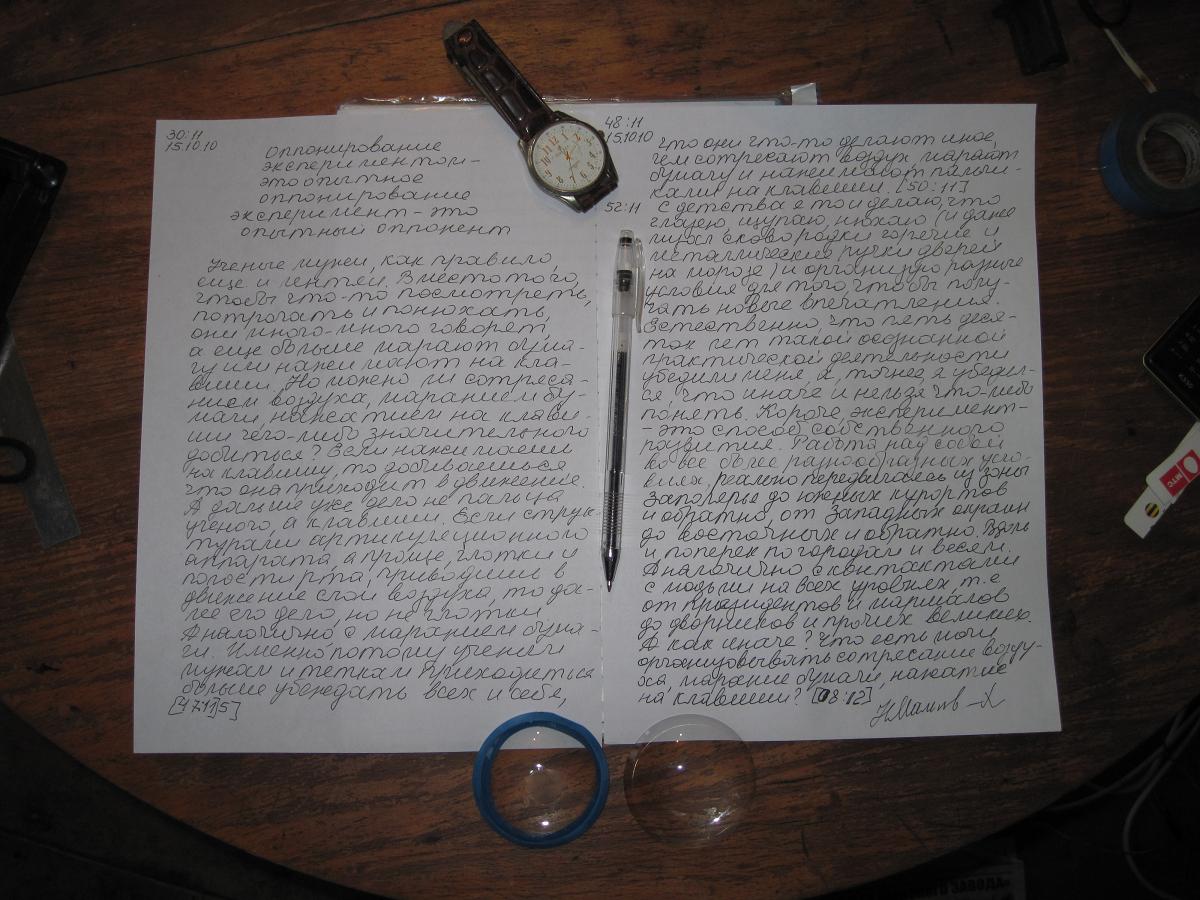 30:11
15.10.10
оппонирование
экспериментом –
это опытное
оппонирование
эксперимент – это
опытный оппонент
Ученые мужи, как правило,
еще и лентяи. Вместо того,
чтобы что-то посмотреть,
потрогать и понюхать,
они много-много говорят,
а еще больше марают бума-
гу или нажимают на кла-
виши. Но можно ли сотряса-
нием воздуха, маранием бу-
маги, нажатием на клави-
ши чего-либо значительного
добиться? Если нажимаешь
на клавишу, то добиваешься
что она приходит в движение.
А дальше уже дело не пальца
ученого, а клавиши. Если струк-
турами артикуляционного
аппарата, а проще, глотки и
полости рта, приводишь в
движение слои воздуха, то да-
лее его дело, но не глотки
Аналогично с маранием бума-
ги. Именно потому ученым
мужам и теткам приходиться
больше убеждать всех и себя,
[47:11]
48:11
15.10.10
что они что-то делают иное,
чем сотрясают воздух, марают
бумагу и нажимают пальчи-
ками на клавиши. [50:11]
52:11
С детства я то и делаю, что
гляжу, щупаю, нюхаю (и даже
лизал сковородки горячие и
металлические ручки дверей
на морозе) и организую разные
условия для того, чтобы полу-
чать новые впечатления.
Естественно, что пять деся-
ток лет такой осознанной
практической деятельности
убедили меня, а, точнее я убедил-
ся, что иначе и нельзя что-либо
понять. Короче, эксперимент –
– это способ собственного
развития. Работа над собой
во все более разнообразных усло-
виях, реально передвигаясь из зоны
Заполярья до южных курортов
и обратно, от Западных окраин
до восточных и обратно. Вдоль
и поперек по городам и весям.
Аналогично с контактами
с людьми на всех уровнях, т.е
от президентов и маршалов
до дворников и прочих великих.
А как иначе? Что есть мочи
организовывать сотрясание возду-
ха, марание бумаги, нажатие
на клавиши? [08:12]
МТС
ЗАВОДА